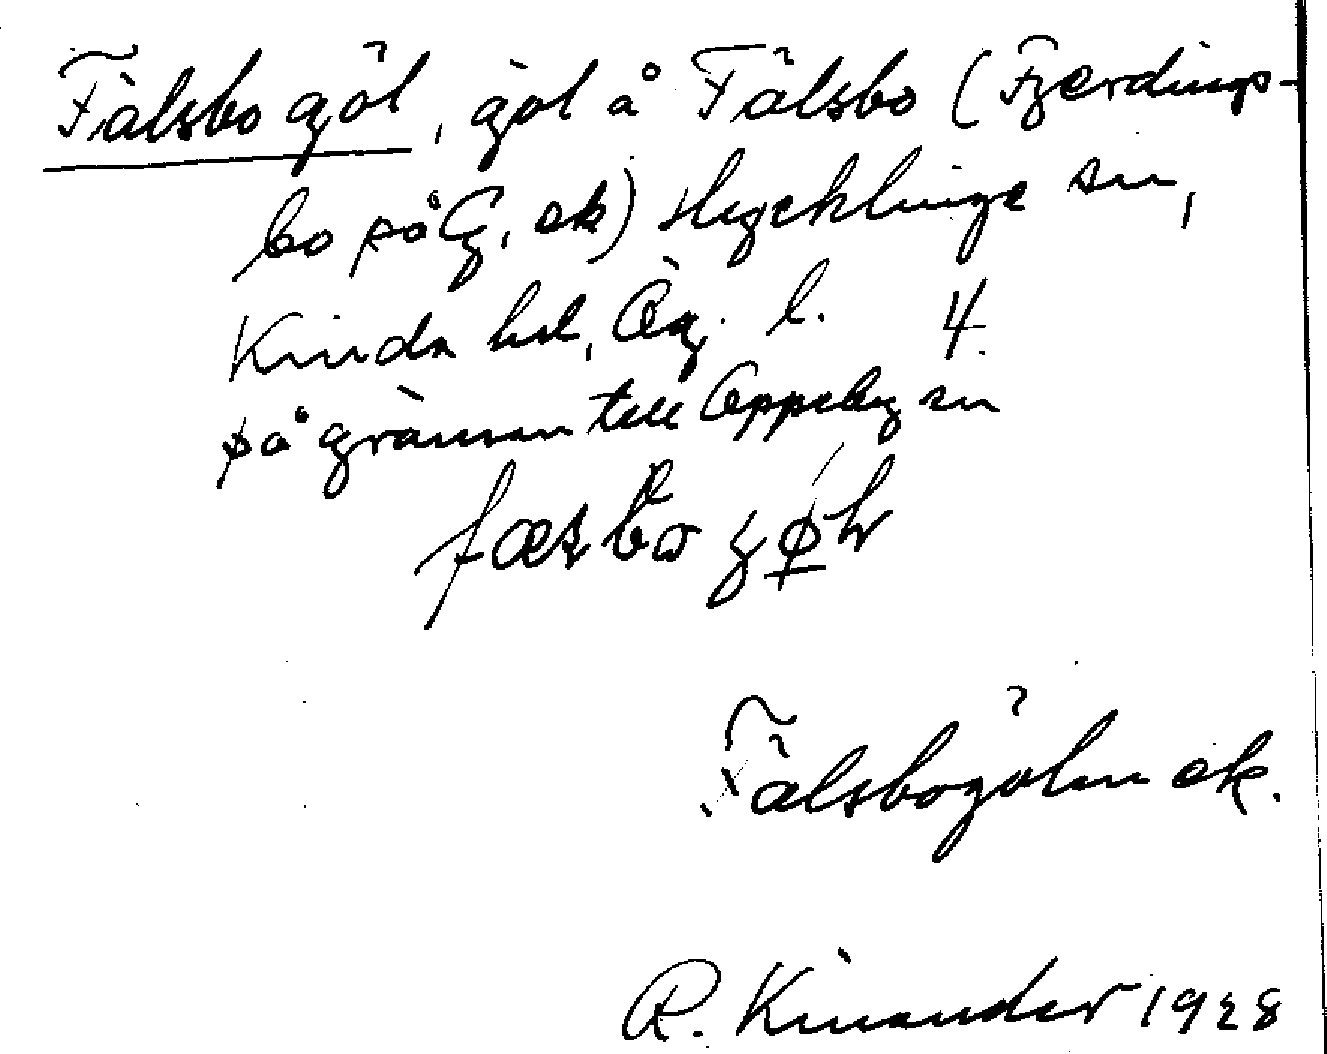 Fälsbo göl, göl å Fälsbo (Fjerdings-
bo på G. ek) Hycklinge sn,
Kinda hd, Ög. l. 4
på gränsen till Oppeby sn
Fälsbogölen ek.
R. Kinander 1928